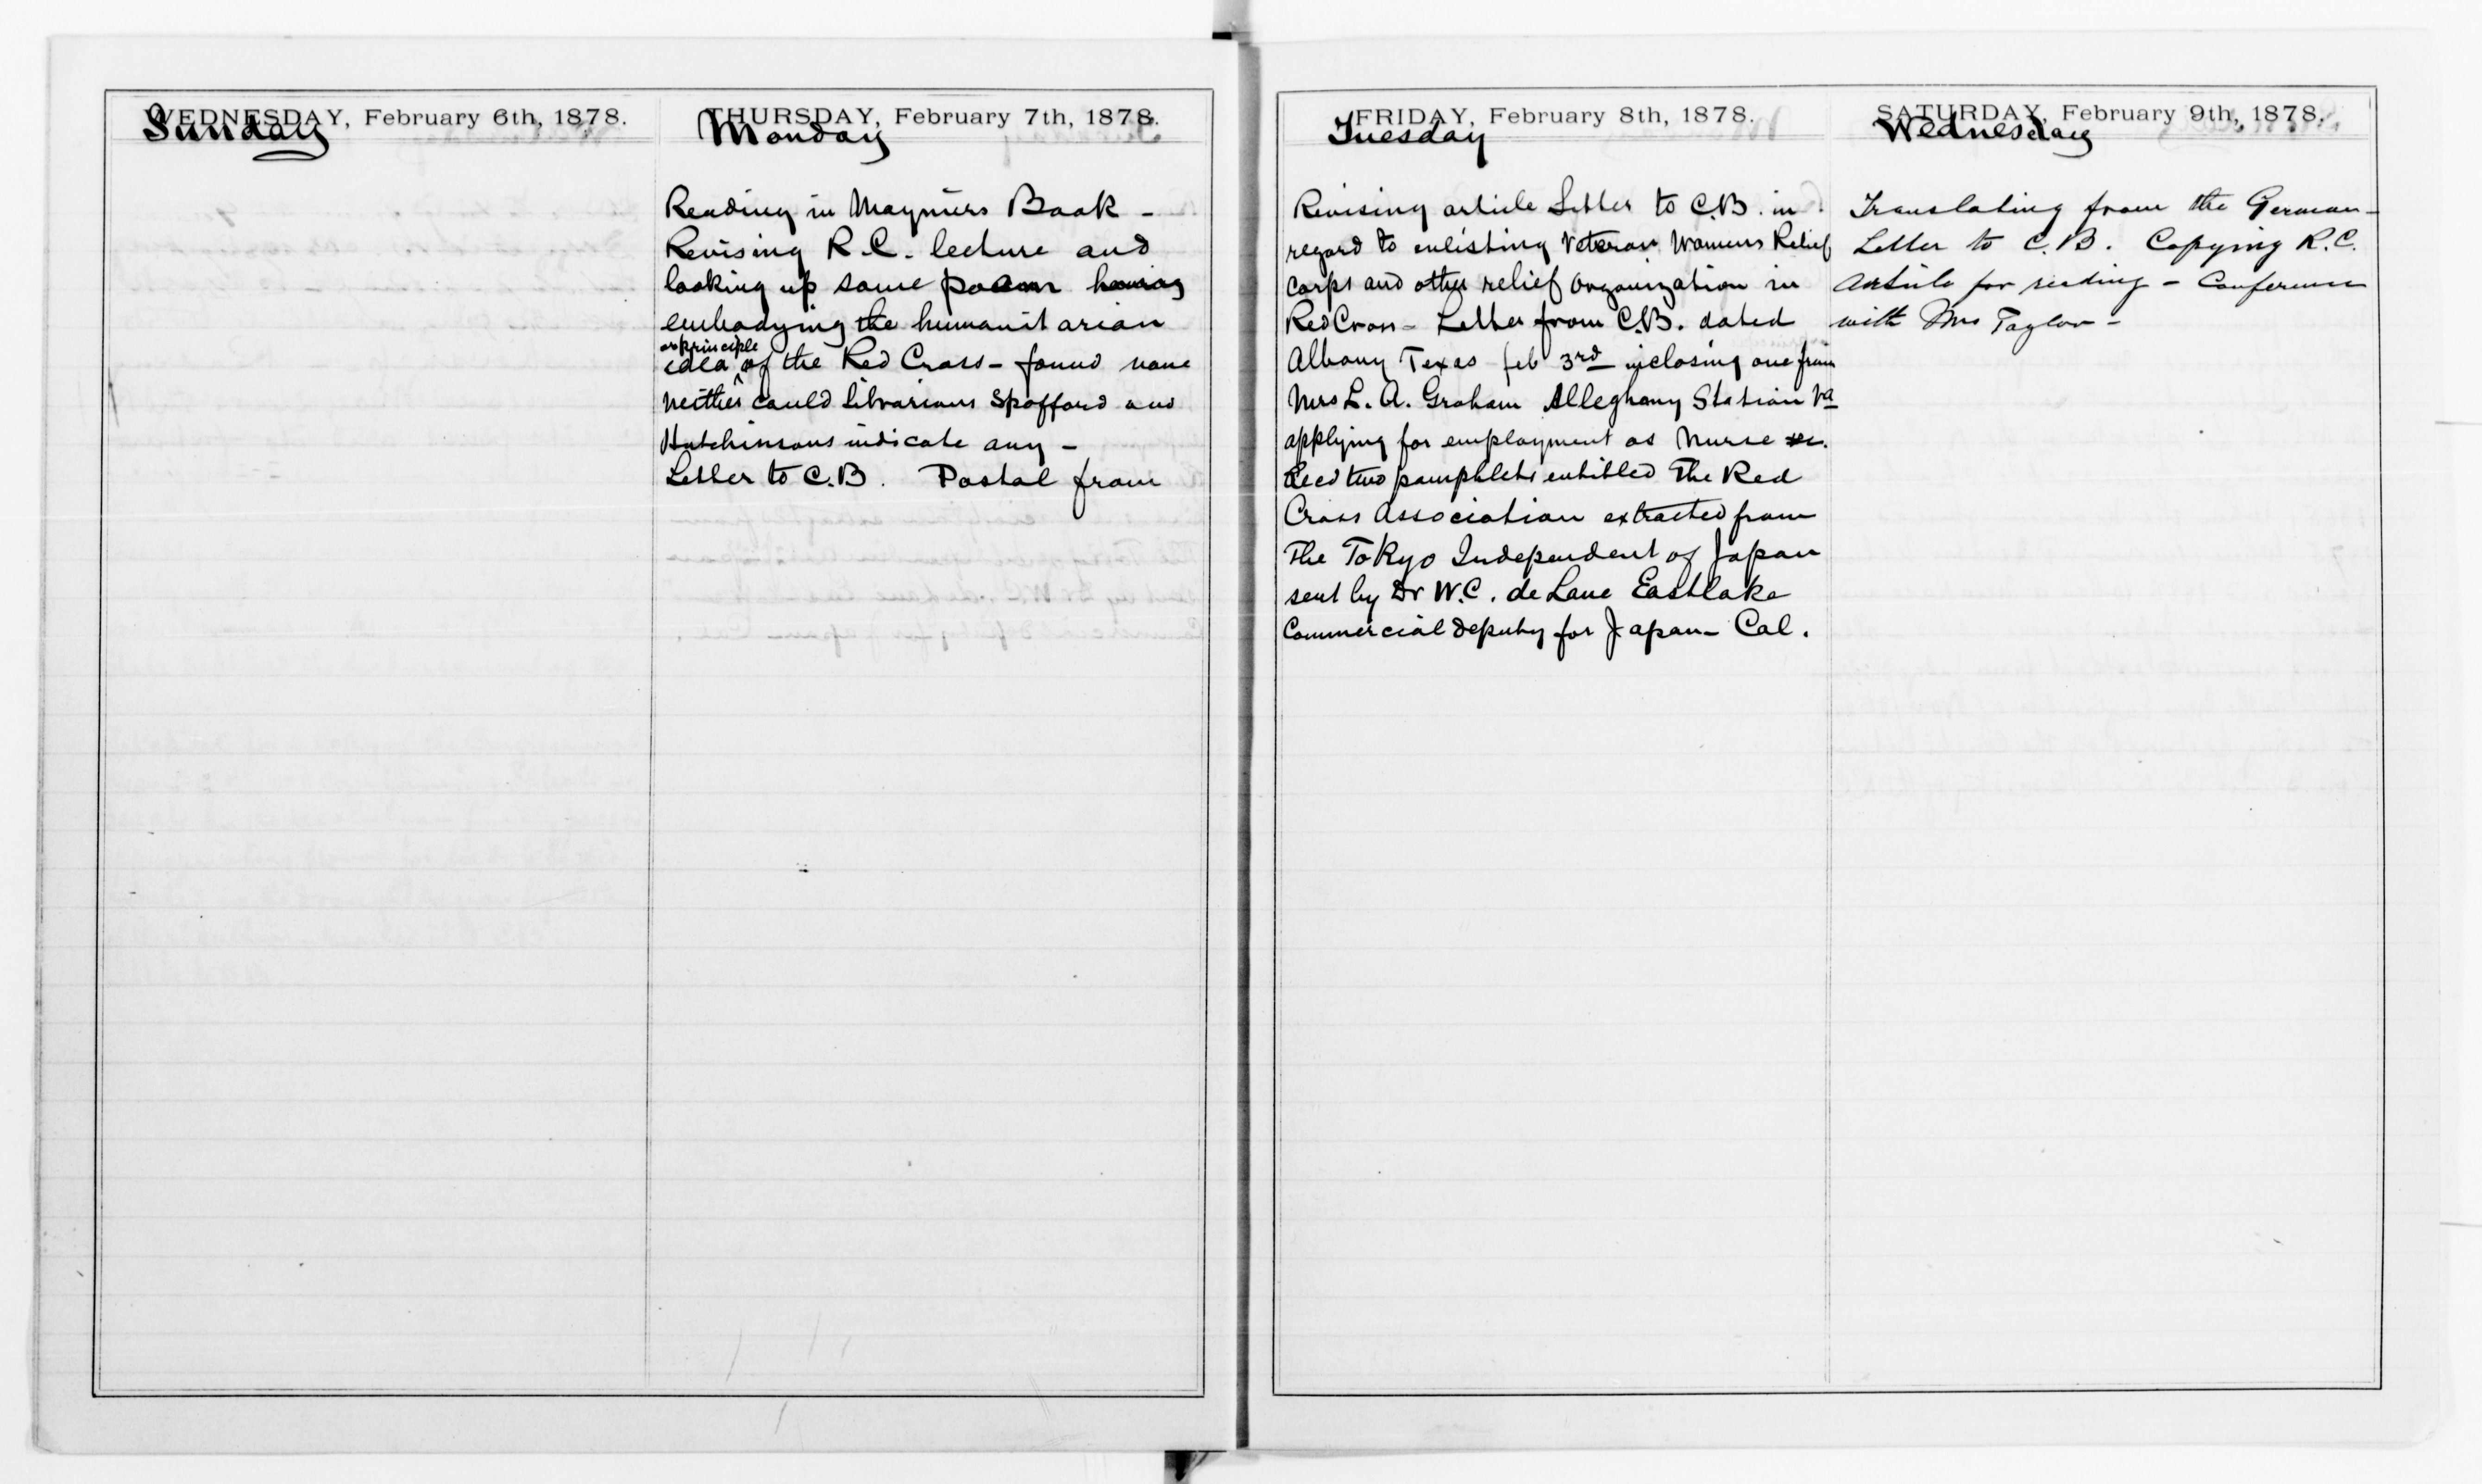 WEDNESDAY, February 6th, 1878.
Sunday
THURSDAY, February 7th, 1878.
Monday
Reading in Moyniers Book -
Revising R.C. lecture and
looking up some poem having
embodying the humanitarian
or principle
idea ^ of the Red Cross - found none
neither could librarians Spofford and
Hutchinsons indicate any -
Letter to C.B. Postal from
FRIDAY, February 8th, 1878.
Tuesday
Revising article Letter to C.B. in
regard to enlisting Veteran Womens Relief
Corps and other relief organization in
Red Cross - Letter from C.B. dated
Albany Texas feb 3rd inclosing one from
Mrs L. A. Graham Alleghany Station Va
applying for employment as Nurse
Recd two pamphlets entitled The Red
Cross Association extracted from
The Tokyo Independent of Japan
sent by Dr W.C. de Lane Eastlake
Commercial deputy for Japan - Cal.
SATURDAY, February 9th, 1878.
Wednesday
Translating from the German -
Letter to C.B. Copying R.C.
Article for reading - Conference
with Mrs Taylor -